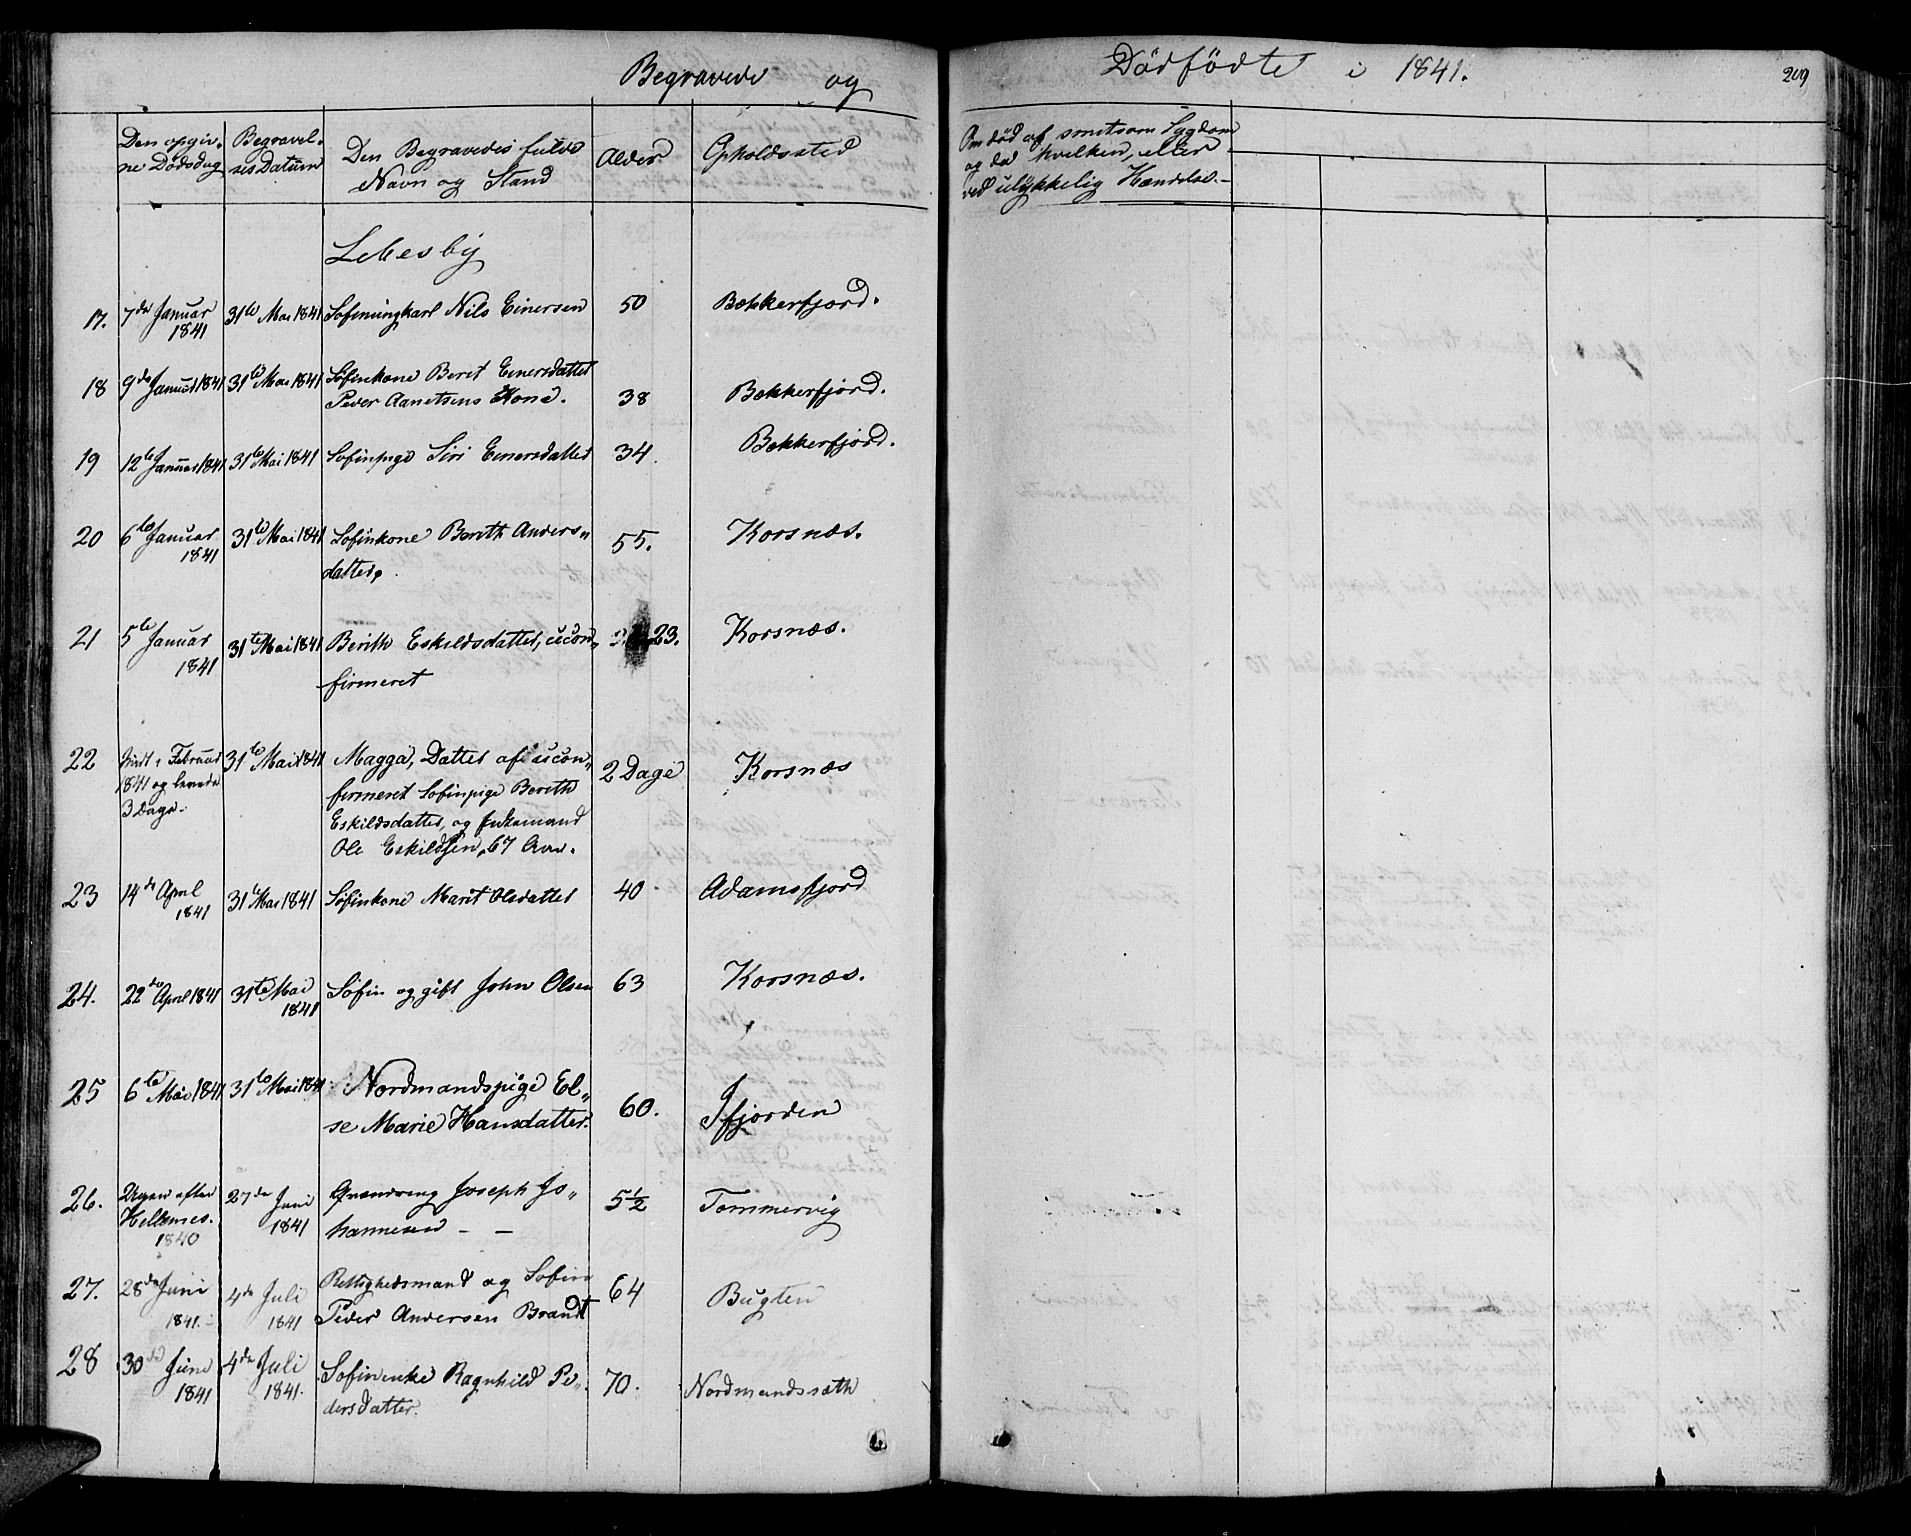 Begravede og
Dödfödte i 1841.
209
Den opgiv-
ne Dødsdag
Begravel-
ses Datum
Den Begravedes fulde
Navn og Stand
Alder
Opholdssted
Om död af smitsom Sygdom
og da hvilken, eller
ved ulykkelig Hændelse.
Lebesby
17. 7de Januar 31te Mai 1841 Søfinungkarl Nils Einersen 50 Bekkerfjord.
1841
18 9de Januar 1841 31te Mai 1841 Søfinkone Berit Einersdatter
Peder Aanetsens Kone. 38 Bekkerfjord.
19 12te Januar 1841 31te Mai 1841 Søfinpige Siri Einersdatter 34 Bekkerfjord.
20 6te Januar 31te Mai 1841 Søfinkone Berith Anders-
1841 datter. 55. Korsnæs.
21 5te Januar 31te Mai 1841 Berith Eskildsdatter, ucon- 23. Korsnæs.
1841 firmeret
22 födt i Februar 31te Mai 1841 Magga, Datter af ucon- 2 Dage Korsnæs
1841 og levede firmeret Søfinpige Berith
3 Dage Eskildsdatter, og
Ole Eskildsen, 67 Aar.
23 14de April 31te Mai 1841 Søfinkone Marit Olsdatter 40 Adamsfjord
1841
24. 22de April 1841 31te Mai Søfin og gift John Olsen 63 Korsnæs.
1841
25 6te Mai 1841 31te Mai 1841 Nordmandspige El-
se Marie Hansdatter. 60. Ifjorden
26. Ugen efter 27de Juni Joseph Jo- 5½ Tommervig
Hellemes. 1841 hannesen
1840
27. 28de Juni 4de Juli Rettighedsmand og Søfin 64 Bugten
1841. 1841 Peder Andersen Brandt
28 30de Juni 4de Juli Søfinenke Ragnhild Pe- 70. Nordmandssæth
1841 1841. dersdatter.